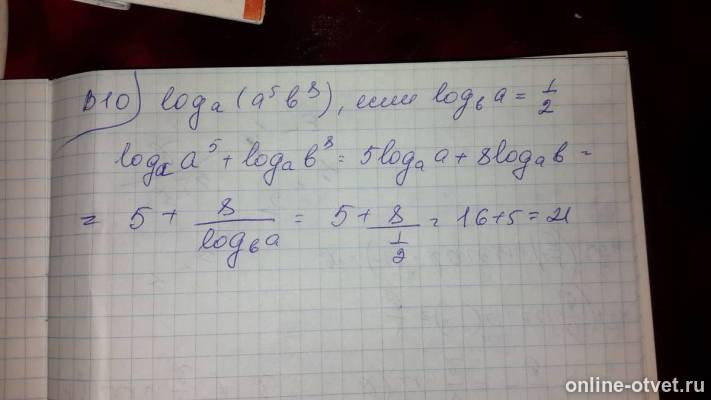 В10) logₐ(a⁵b⁸), если log_b a = 1/2
logₐ a⁵ + logₐ b⁸ = 5logₐ a + 8logₐ b =
= 5 + 8/(log_b a) = 5 + 8/(1/2) = 16+5 = 21
online-otvet.ru